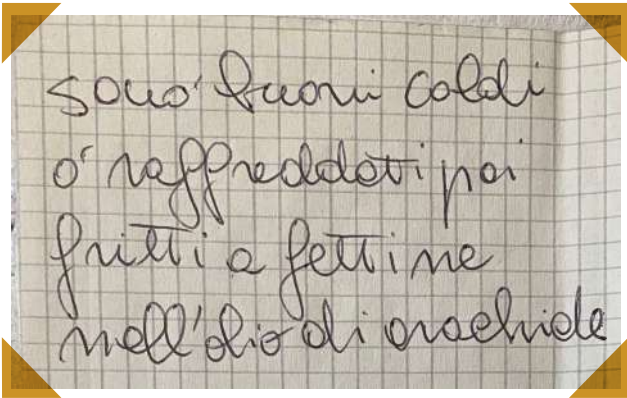 sono' buoni caldi
o' raffreddati poi
fritti a fettine
nell'olio di arachide